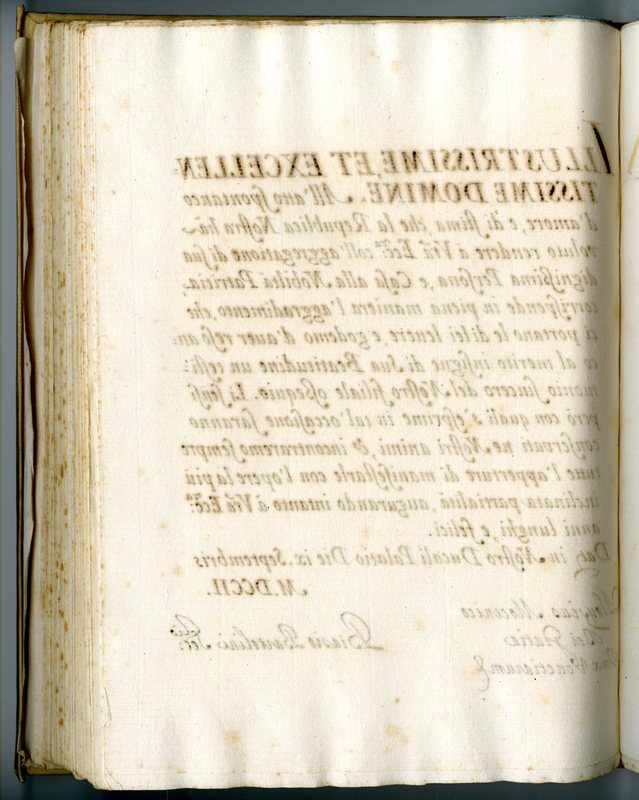 ILLUSTRISSIME, ET EXCELLEN-
TISSIME DOMINE. All'atto spontaneo
d'amore, e di stima, che la Republica Nostra hà
voluto rendere à Vrã Ecc.ᶻᵃ coll'aggregatione di sua
dignissima Persona, e Casa alla Nobiltà Patritia,
corrisponde in piena maniera l'aggradimento, che
ci portano le di lei lettere, e godemo d'auer resο an-
co al merito insigne di Sua Beatitudine un testi-
monio sincero del Nostro filiale ossequio. Li sensi
però con quali s'esprime in tal'occasione saranno
conseruati ne Nostri animi, & incontraremo sempre
tutte l'apperture di manifestarle con l'opere la più
inclinata partialità, augurando intanto à Vrã Ecc.ᶻᵃ
anni lunghi, e felici.
Dat. in Nostro Ducali Palatio Die ix. Septembris
M.DCCII.
Aloysius Mocenico
Dei Gratia
Dux Venetiarum &
Biasio Bartolini Sec.